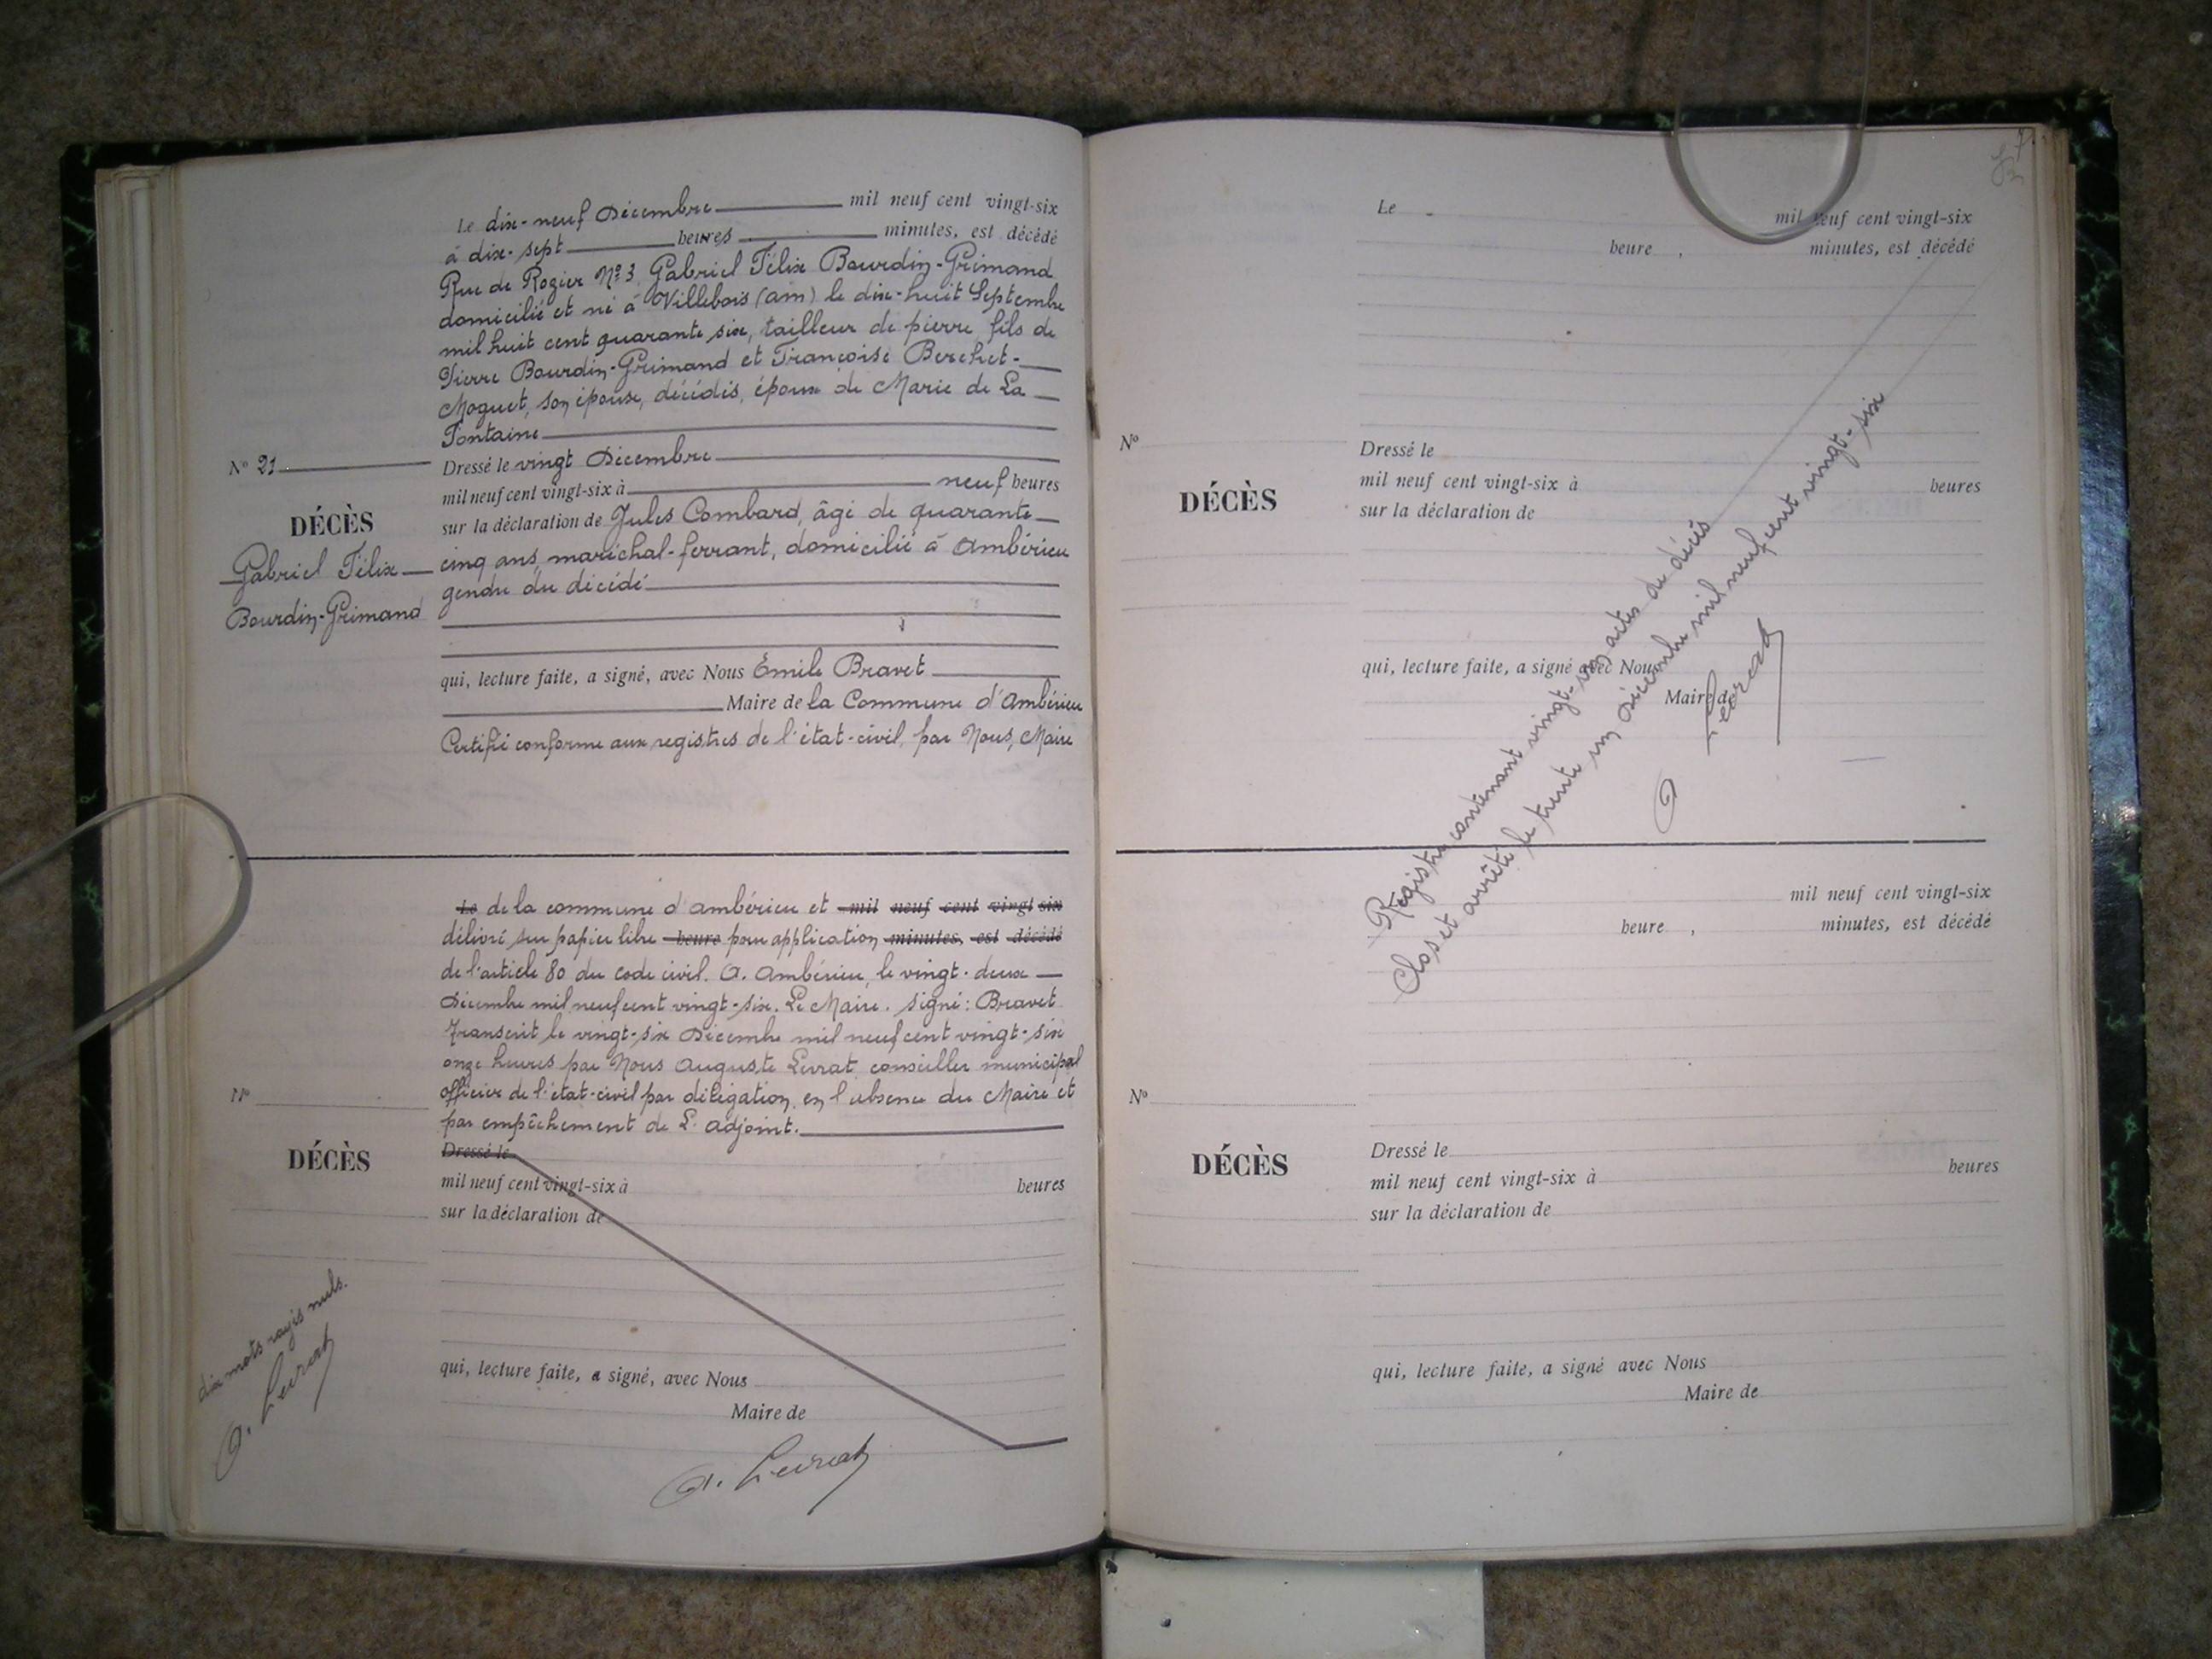 Le dix-neuf Décembre mil neuf cent vingt-six
à dix-sept heures minutes, est décédé
Rue de Rozier Nº 3, Gabriel Félix Bourdin-Grimand
domicilié et né à Villebois (Ain) le dix-huit Septembre
mil huit cent quarante six, tailleur de pierre fils de
Pierre Bourdin-Grimand et Françoise Berchet-
Moguet, son épouse, décédés, époux de Marie de La
Fontaine
Nº 21
DÉCÈS
Gabriel Félix
Bourdin-Grimand
Dressé le vingt Décembre
mil neuf cent vingt-six à neuf heures
sur la déclaration de Jules Combard, âgé de quarante
cinq ans, maréchal-ferrant, domicilié à Ambérieu
gendre du décédé
qui, lecture faite, a signé, avec Nous Émile Bravet
Maire de la Commune d'Ambérieu
Certifié conforme aux registres de l'état-civil, par Nous, Maire
Le de la commune d'Ambérieu et mil neuf cent vingt six
délivré sur papier libre heure pour application minutes, est décédé
de l'article 80 du code civil. A. Ambérieu, le vingt-deux
Décembre mil neuf cent vingt-six. Le Maire. signé : Bravet
Transcrit le vingt-six Décembre mil neuf cent vingt-six
onze heures par Nous Auguste Levrat, conseiller municipal
officier de l'état-civil par délégation, en l'absence du Maire et
par empêchement de L'adjoint.
Nº
DÉCÈS
Dressé le
mil neuf cent vingt-six à heures
sur la déclaration de
dix mots rayés nuls.
A. Levrat
qui, lecture faite, a signé, avec Nous
Maire de
A. Levrat
Le mil neuf cent vingt-six
heure , minutes, est décédé
Nº
DÉCÈS
Dressé le
mil neuf cent vingt-six à heures
sur la déclaration de
qui, lecture faite, a signé avec Nous
Maire de
Registre contenant vingt-un actes de décès
Clos et arrêté le trente un Décembre mil neuf cent vingt-six
A. Levrat
mil neuf cent vingt-six
heure , minutes, est décédé
Nº
DÉCÈS
Dressé le
mil neuf cent vingt-six à heures
sur la déclaration de
qui, lecture faite, a signé avec Nous
Maire de